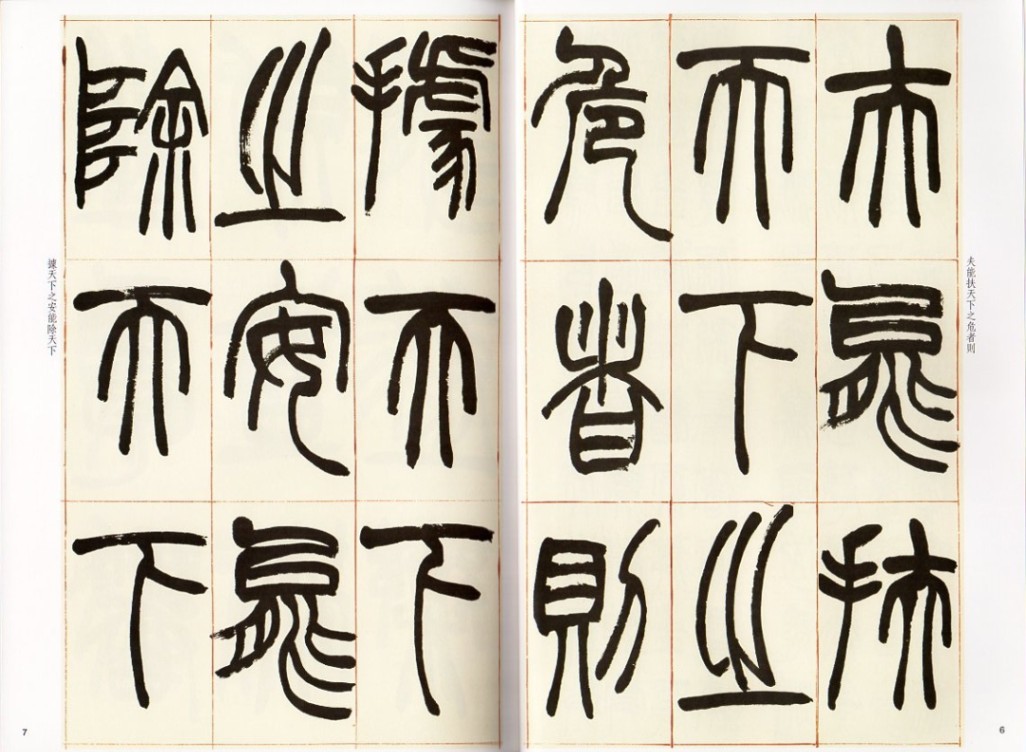 夫能扶
天下之
危者則
夫能扶天下之危者則
6
據天下
之安能
除天下
據天下之安能除天下
7